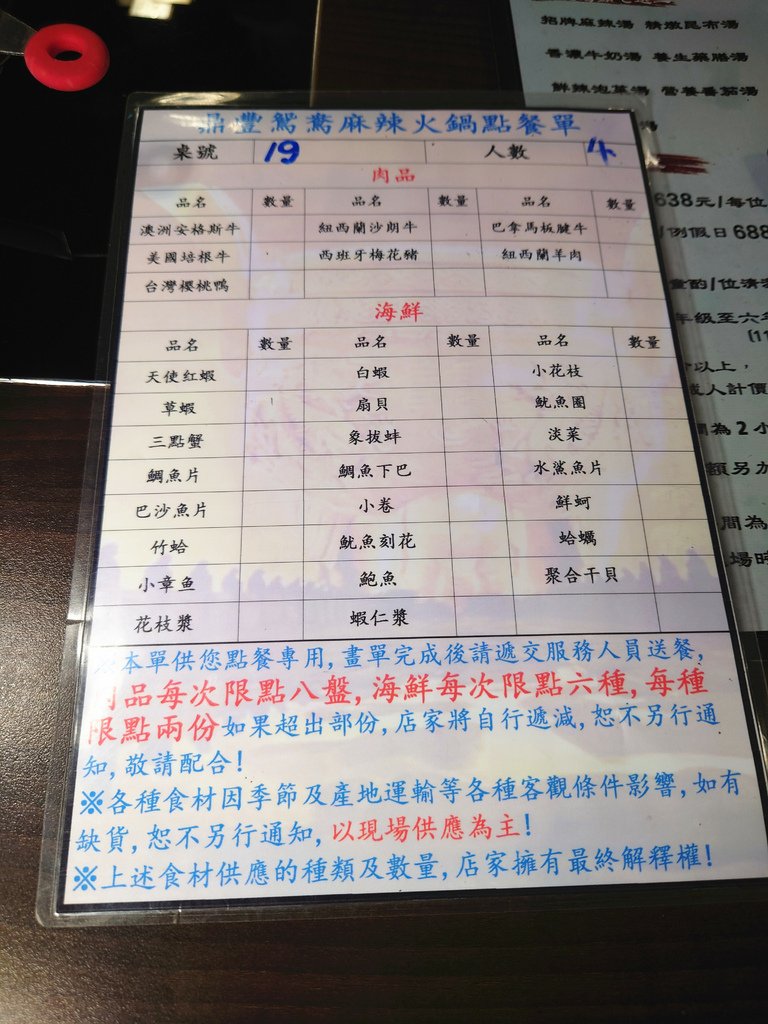 鼎豐鴛鴦麻辣火鍋點餐單
桌號 19 人數 4
肉品
品名 數量 品名 數量 品名 數量
澳洲安格斯牛 紐西蘭沙朗牛 巴拿馬板腱牛
美國培根牛 西班牙梅花豬 紐西蘭羊肉
台灣櫻桃鴨
海鮮
品名 數量 品名 數量 品名 數量
天使红蝦 白蝦 小花枝
草蝦 扇貝 魷魚圈
三點蟹 象拔蚌 淡菜
鯛魚片 鯛魚下巴 水鯊魚片
巴沙魚片 小卷 鮮蚵
竹蛤 魷魚刻花 蛤蠣
小章鱼 鮑魚 聚合干貝
花枝漿 蝦仁漿
※本單供您點餐專用,畫單完成後請遞交服務人員送餐,
肉品每次限點八盤,海鮮每次限點六種,每種
限點兩份如果超出部份,店家將自行遞減,恕不另行通
知,敬請配合!
※各種食材因季節及產地運輸等各種客觀條件影響,如有
缺貨,恕不另行通知,以現場供應為主!
※上述食材供應的種類及數量,店家擁有最終解釋權!
招牌麻辣湯 精燉昆布湯
香濃牛奶湯 養生藥膳湯
鮮辣泡菜湯 營養番茄湯
湯
638元/每位
/例假日 688
酌/位清潔
年級至六年
(11
以上,
人計價
為2小
額另加
間為
場時